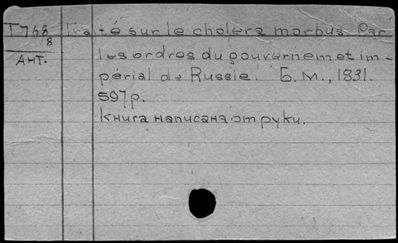 T748 Traité sur le cholera morbus. Par
8
Ант. les ordres du gouvernemet im-
périal de Russie. Б.М., 1831.
597 p.
Книга написана от руки.